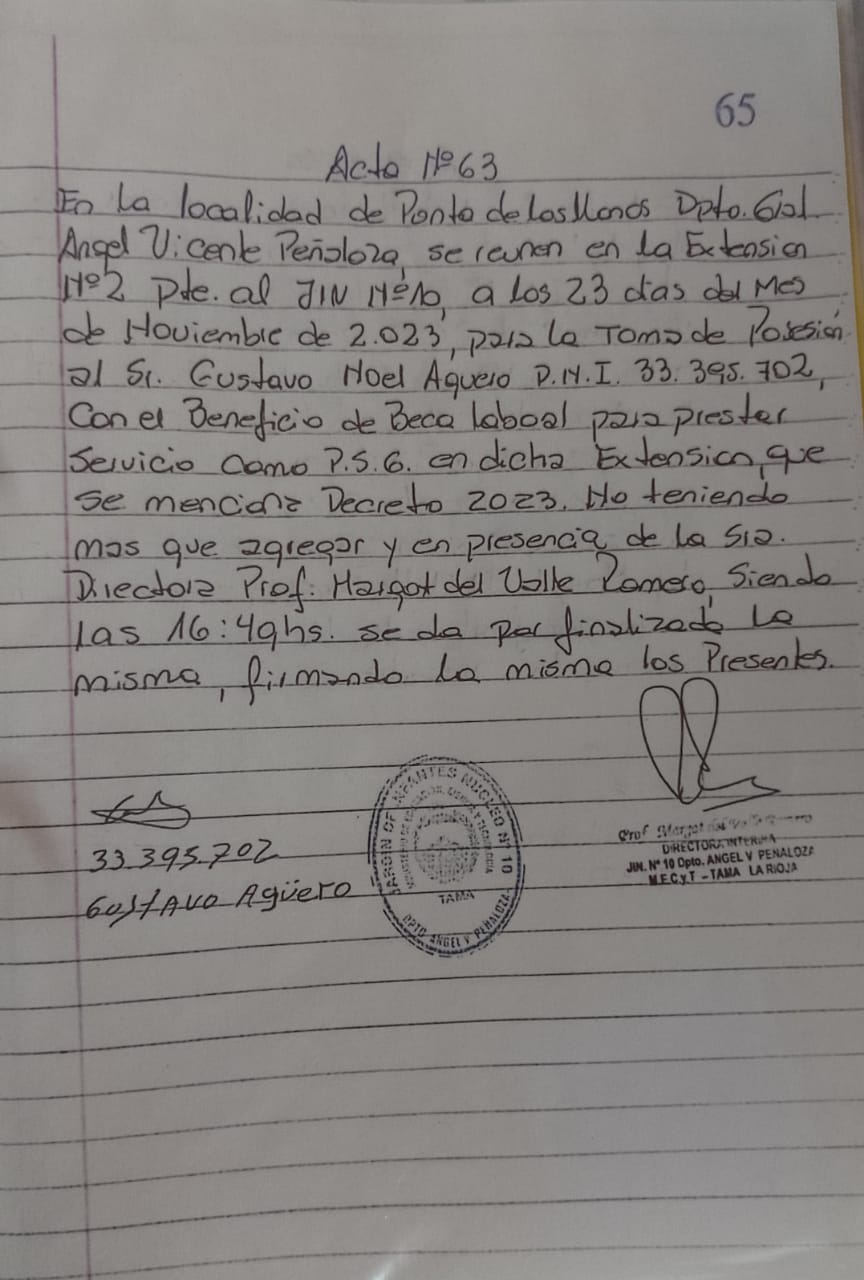 65
Acta Nº 63
En la localidad de Punta de los Llanos Dpto. Gral
Angel Vicente Peñaloza, se reunen en la Extension
Nº2 Pte. al JIN Nº10, a los 23 dias del Mes
de Noviembre de 2.023, para la Toma de Posesión
al Sr. Gustavo Noel Aguero D.N.I. 33.395.702,
Con el Beneficio de Beca laboal para prestar
Servicio Como P.S.G. en dicha Extension, que
se menciona Decreto 2023. No teniendo
mas que agregar y en presencia de la Sra.
Directora Prof. Margot del Valle Romero, Siendo
las 16:49hs. se da por finalizada la
misma, firmando la misma los Presentes.
33.395.702
GUSTAVO AGÜERO
JARDIN DE INFANTES NUCLEO Nº 10
TAMA
DPTO ANGEL V PEÑALOZA
Prof Margot del
DIRECTORA INTERINA
JIN. Nº 10 Dpto. ANGEL V PEÑALOZA
M.E.C.y.T - TAMA LA RIOJA